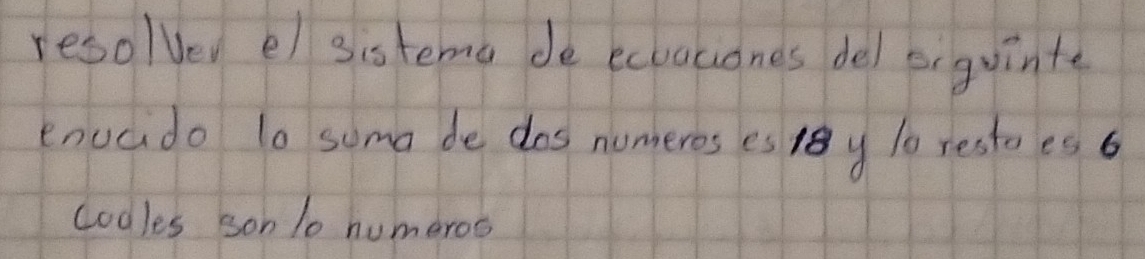 resolver el sistema de ecuaciones del siguinte
enucido la suma de dos numeros es 18 y la resta es 6
cuales son lo numeros